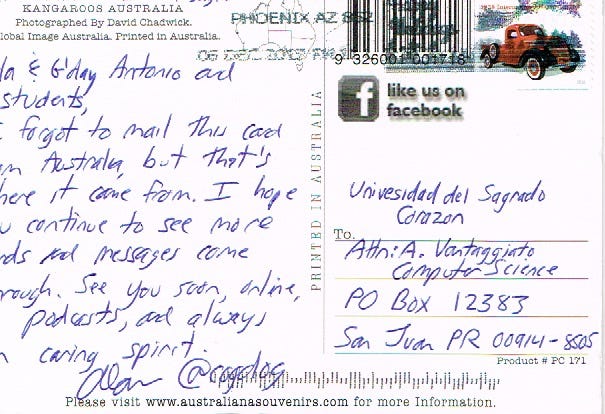 KANGAROOS AUSTRALIA
Photographed By David Chadwick.
lobal Image Australia. Printed in Australia.
PHOENIX AZ 852
9 326001 001718
like us on
facebook
la & G'day Antonio and
students,
forgot to mail this card
Australia, but that's
here it came from. I hope
u continue to see more
nds and messages come
rough. See you soon, online,
podcasts, and always
n caring spirit.
Alan @cogdog
PRINTED IN AUSTRALIA
Univesidad del Sagrado
Corazon
To.
Attn: A. Vantaggiato
Computer Science
PO Box 12383
San Juan PR 00914-8505
Product # PC 171
Please visit www.australianasouvenirs.com for more Information.